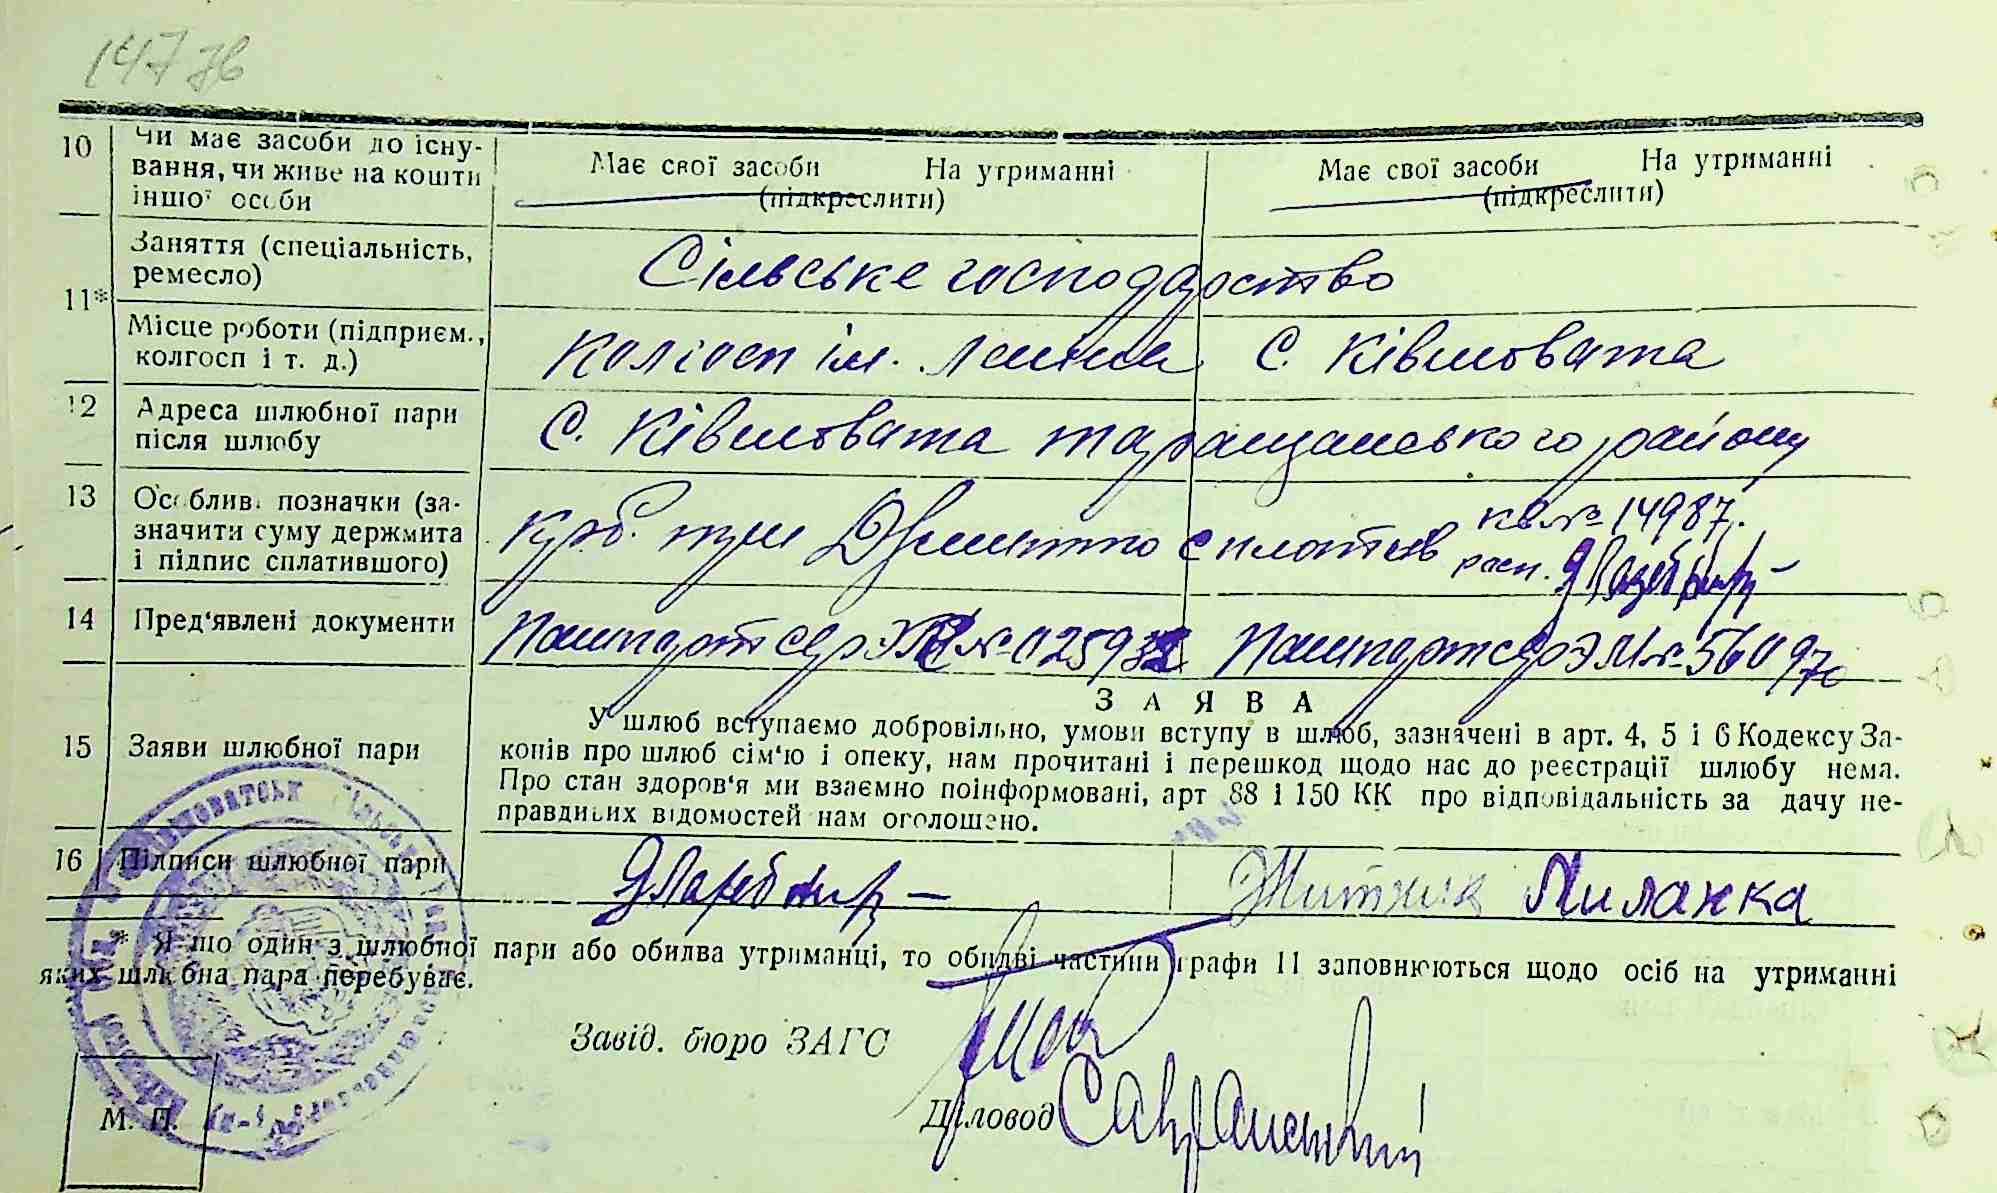 147 зв
10 Чи має засоби до існу-
вання, чи живе на кошти
іншої особи
Має свої засоби На утриманні
(підкреслити)
Має свої засоби На утриманні
(підкреслити)
11*
Заняття (спеціальність,
ремесло)
Сільське господарство
Місце роботи (підприєм.,
колгосп і т. д.)
Колгосп ім. Леніна с. Ківшовата
12 Адреса шлюбної пари
після шлюбу
С. Ківшовата таращанського району
13 Особливі позначки (за-
значити суму держмита
і підпис сплатившого)
крб. три Держмито сплотив
кв. № 14987.
расп.
14 Пред'явлені документи
Пашпорт сер № 02593 Пашпорт сер ЭМ № 560970
ЗАЯВА
15 Заяви шлюбної пари
У шлюб вступаємо добровільно, умови вступу в шлюб, зазначені в арт. 4, 5 і 6 Кодексу За-
конів про шлюб сім'ю і опеку, нам прочитані і перешкод щодо нас до реєстрації шлюбу нема.
Про стан здоров'я ми взаємно поінформовані, арт 88 і 150 КК про відповідальність за дачу не-
правдивих відомостей нам оголошено.
16 Підписи шлюбної пари
Житник Миланка
* Якщо один з шлюбної пари або обидва утриманці, то обидві частини графи 11 заповнюються щодо осіб на утриманні
яких шлюбна пара перебуває.
Завід. бюро ЗАГС
Діловод
М. П.